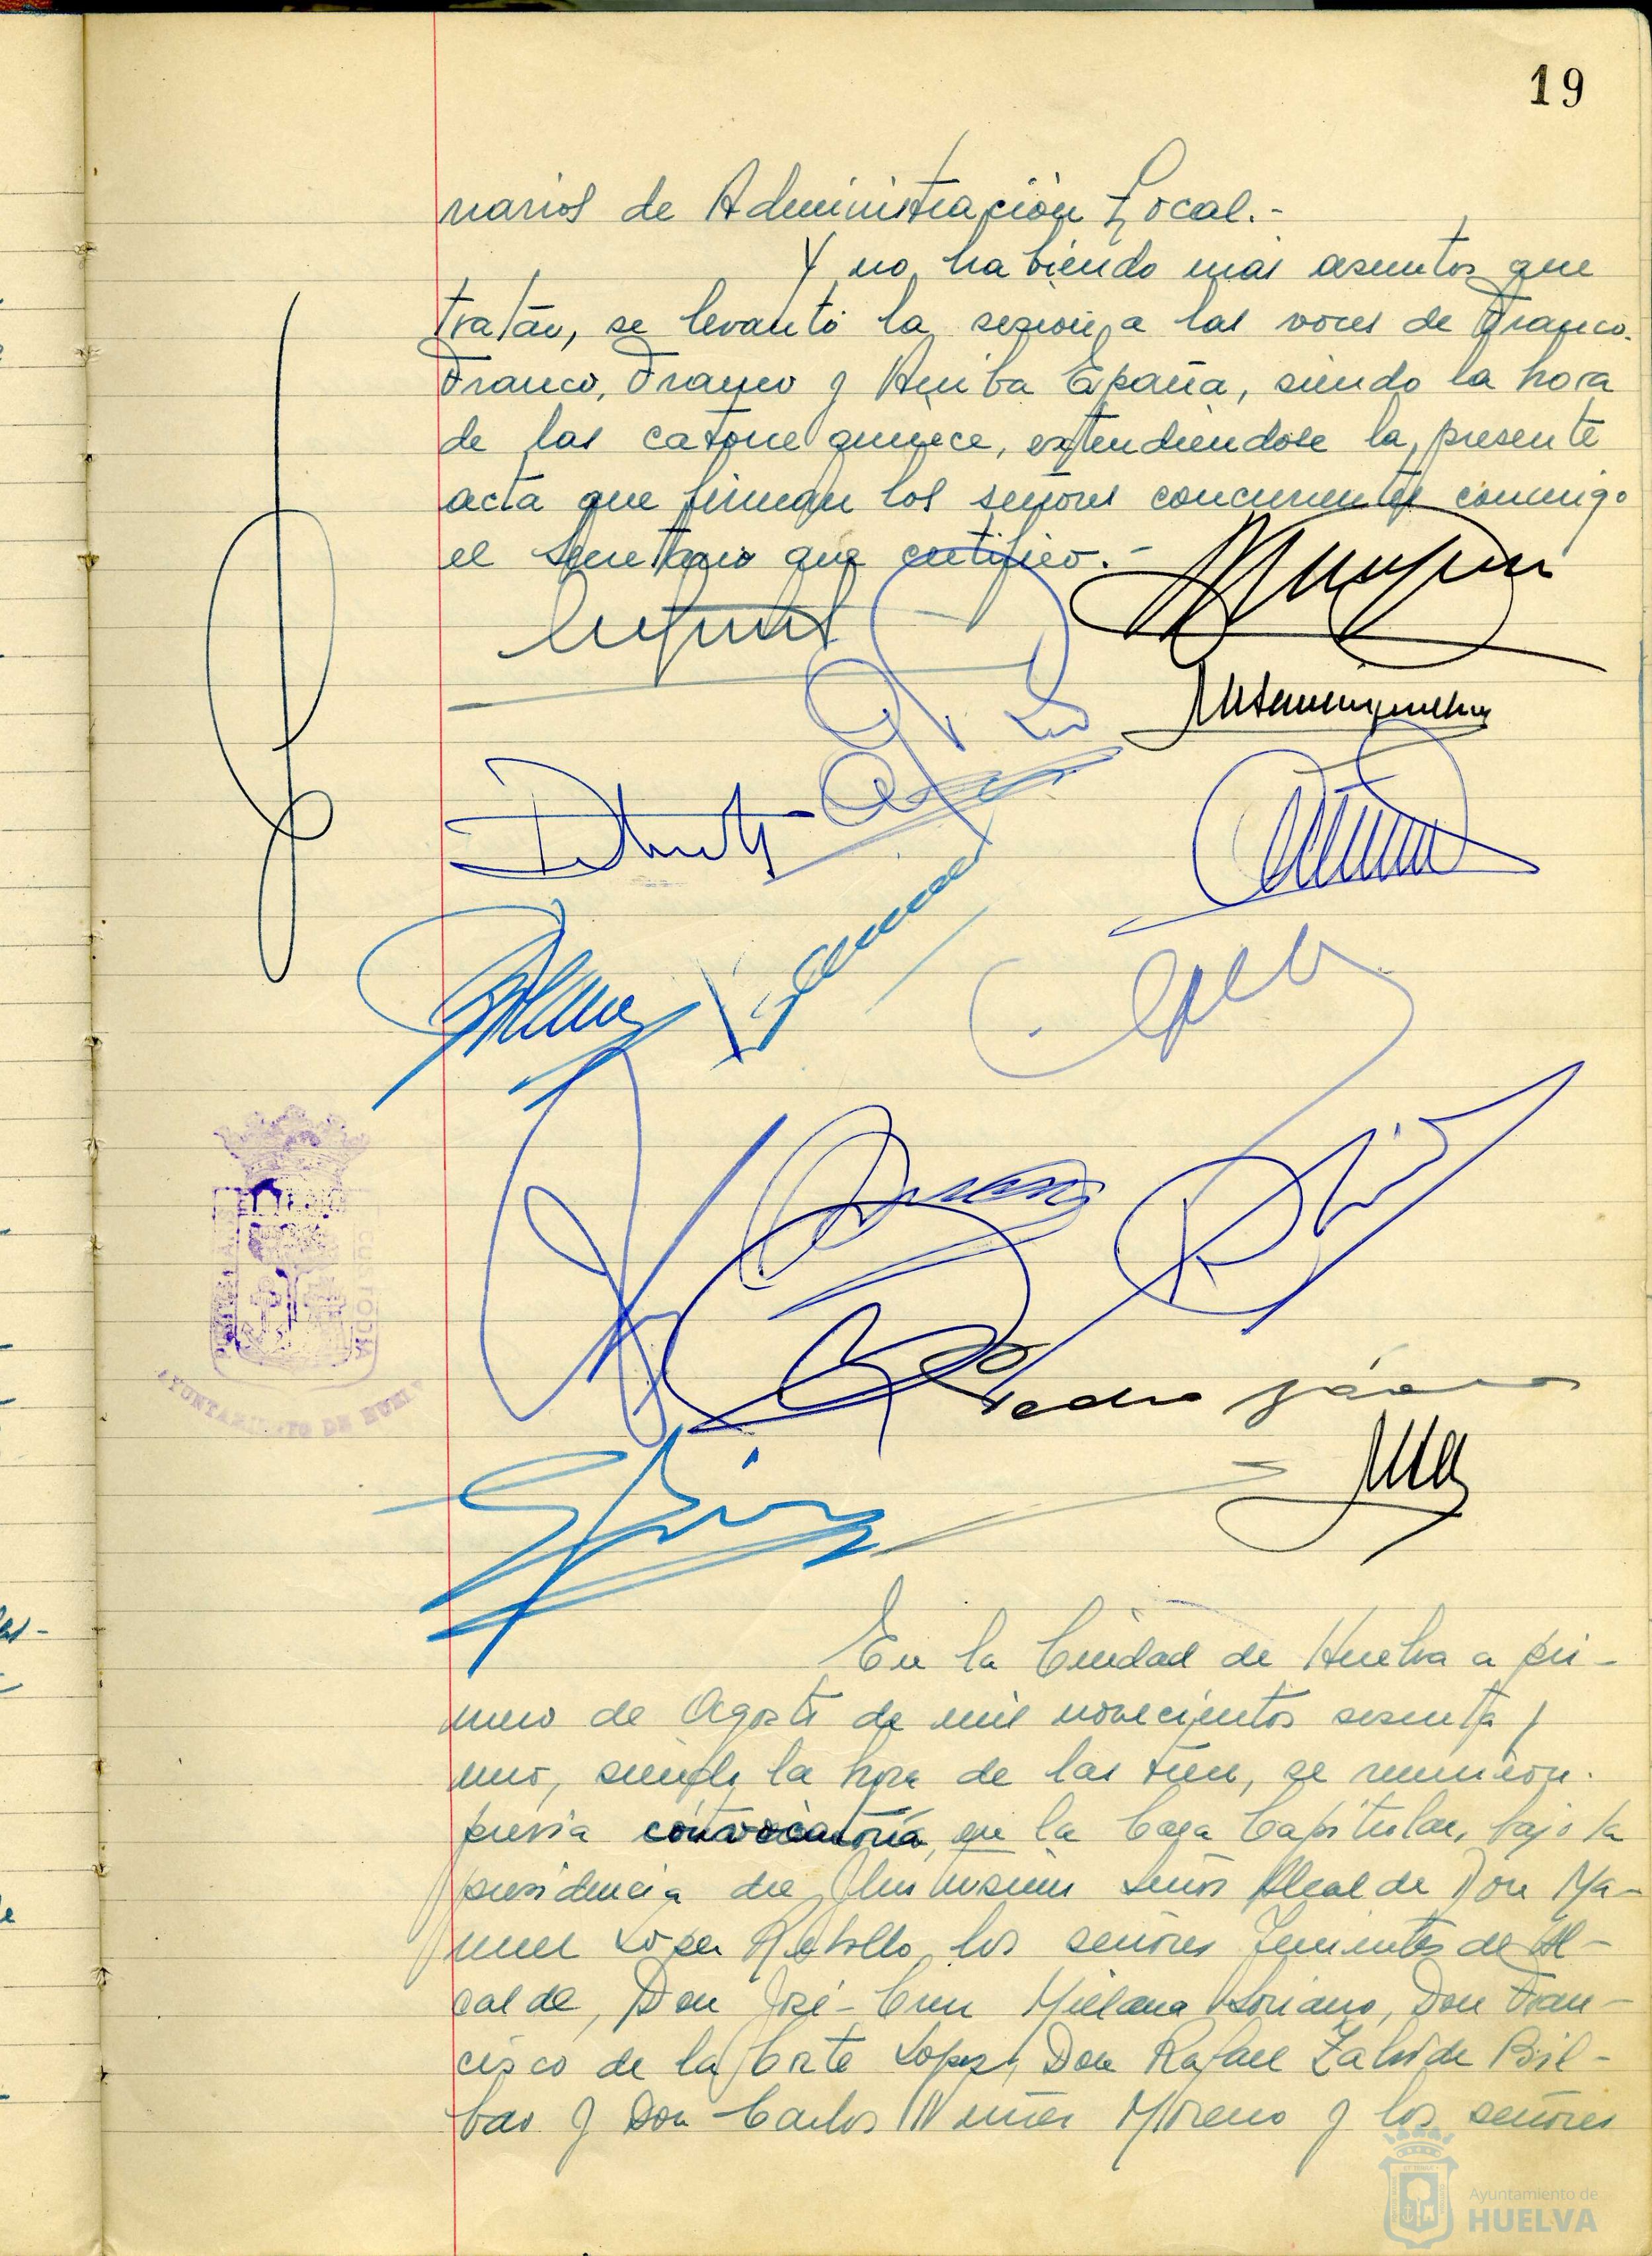 19
narios de Administración Local.-
Y no habiendo más asuntos que
tratar, se levantó la sesión a las voces de Franco,
Franco, Franco y Arriba España, siendo la hora
de las catorce quince, extendiéndose la presente
acta que firman los señores concurrentes conmigo
el Secretario que certifico.-
Pedro
AYUNTAMIENTO DE HUELVA
En la Ciudad de Huelva a pri-
mero de Agosto de mil novecientos sesenta y
uno, siendo la hora de las, se reunieron.
previa convocatoria, en la Casa Capitular, bajo la
presidencia del Ilustrísimo señor Alcalde Don Ma-
nuel López Rebollo, los señores Tenientes de Al-
calde, Don José-Cruz Millana Soriano, Don Fran-
cisco de la Corte López, Don Rafael Zalvide Bil-
bao y Don Carlos Núñez Moreno y los señores
Ayuntamiento de
HUELVA